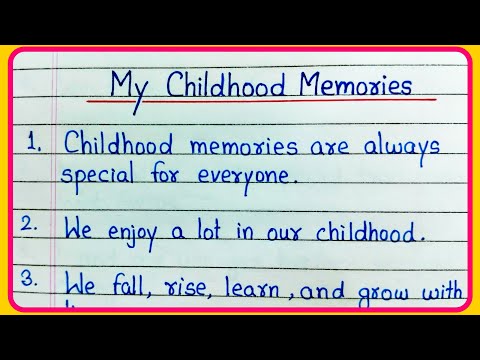 My Childhood Memories
1. Childhood memories are always
special for everyone.
2. We enjoy a lot in our childhood.
3. We fall, rise, learn, and grow with